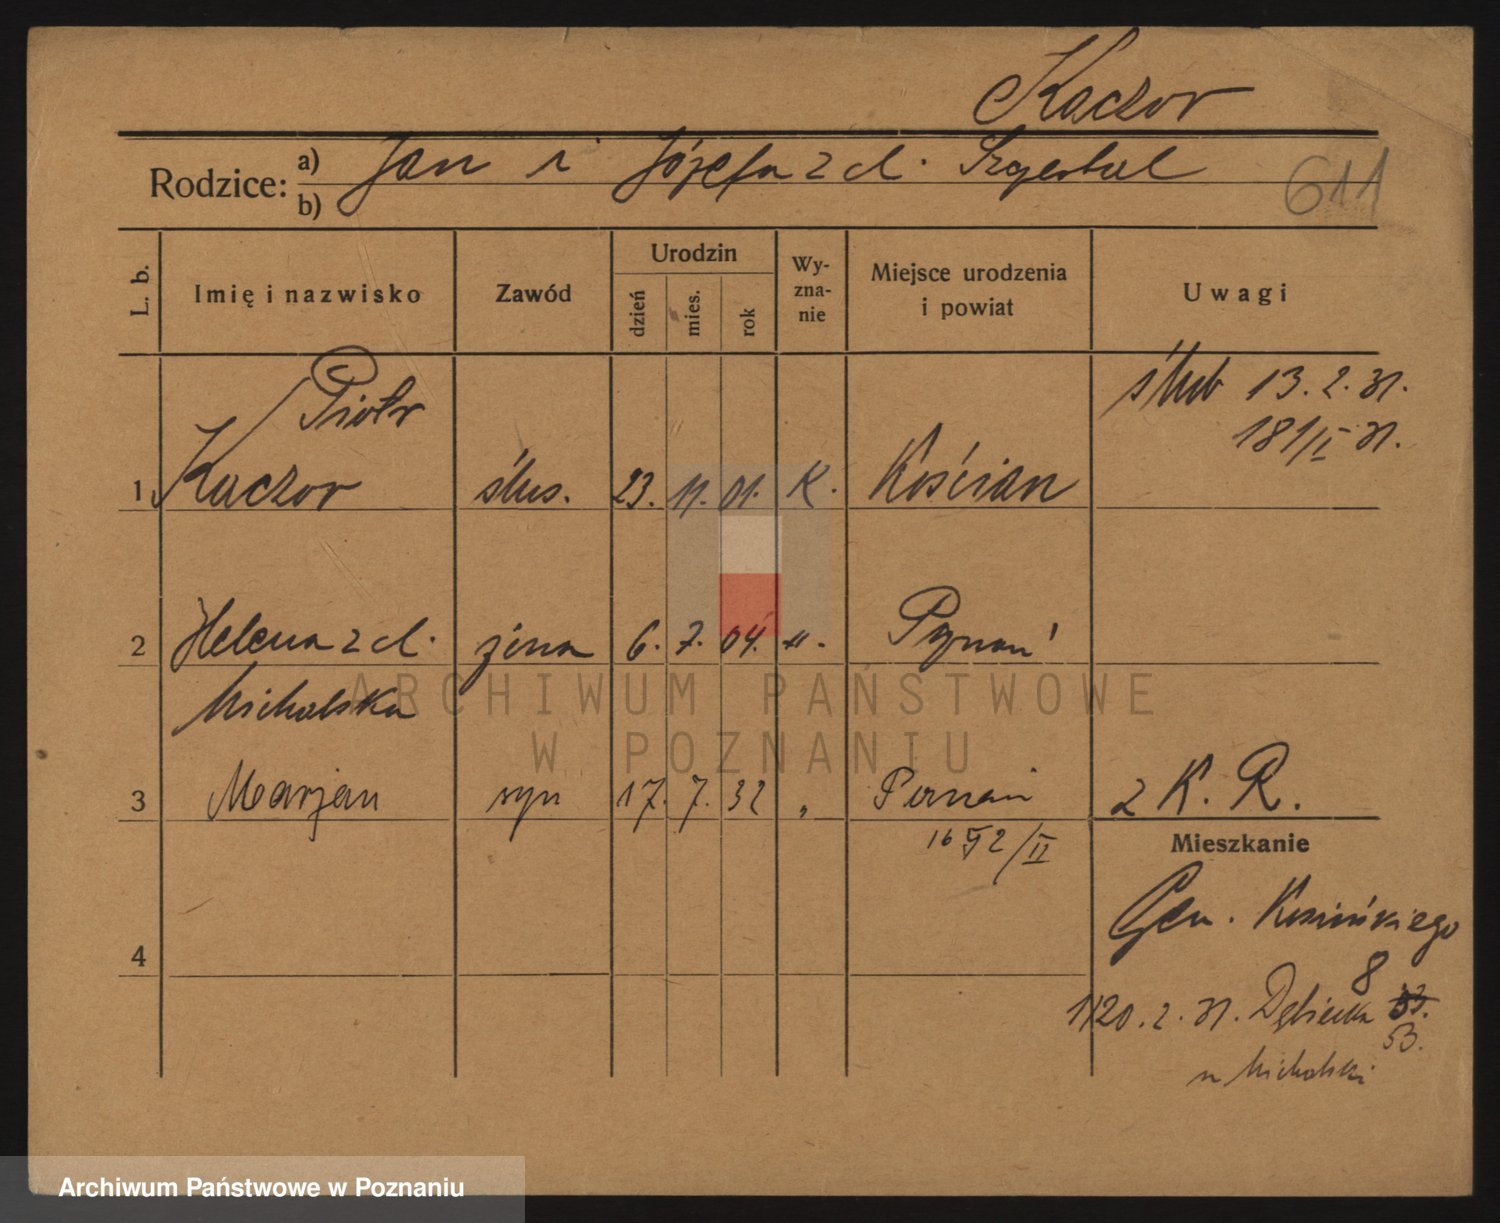 Kaczor
Rodzice: a) Jan i Józefa z d.
b)
611
L. b.
Imię i nazwisko
Zawód
Urodzin
dzień
mies.
rok
Wy-
zna-
nie
Miejsce urodzenia
i powiat
Uwagi
ślub 13. 2. 31.
181/II 31.
Piotr
1 Kaczor ślus. 23. 11. 01. K. Kościan
2 Helena z d. żona 6. 7. 04. -"- Poznań
Michalska
3 Marjan syn 17. 7. 32 " Poznań
2 K. R.
/II
Mieszkanie
Gen. Kosińskiego
8
4
20. 2. 31. Dębiecka 33.
53.
u Michalski
ARCHIWUM PAŃSTWOWE
W POZNANIU
Archiwum Państwowe w Poznaniu